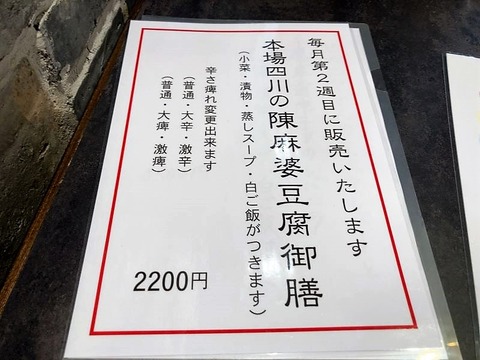 毎月第2週目に販売いたします
本場四川の陳麻婆豆腐御膳
(小菜・漬物・蒸しスープ・白ご飯がつきます)
辛さ痺れ変更出来ます
(普通・大辛・激辛)
(普通・大痺・激痺)
2200円